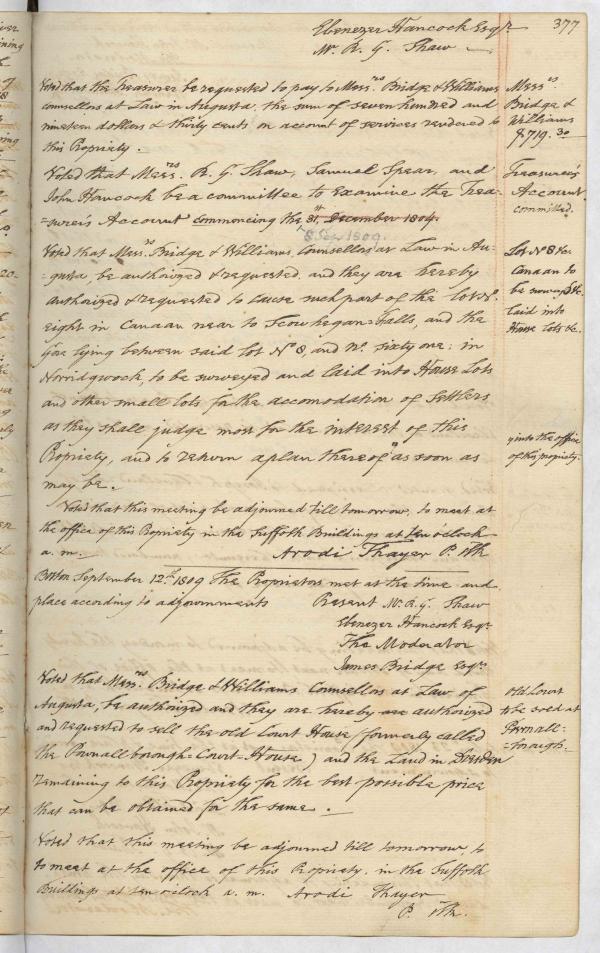 377
Ebenezer Hancock Esqr.
Mr. R. G. Shaw
Voted that the Treasurer be requested to pay to Messrs. Bridge & Williams
counsellors at Law in Augusta, the sum of seven hundred and
nineteen dollars & thirty cents on account of services rendered to
this Propriety.
Messrs.
Bridge &
Williams
$719.30
Voted that Messrs. R. G. Shaw, Samuel Spear, and
John Hancock be a committee to examine the Trea-
=surer's Account commencing the 31st. December 1804.
8 Sep 1809.
Treasurer's
Account
committed.
Voted that Messrs. Bridge & Williams, Counsellors at Law in Au-
gusta, be authorized & requested, and they are hereby
authorized & requested to cause such part of the lot No.
eight in Canaan near to Scowhegan-Falls, and the
Gore lying between said lot No 8, and No. sixty one, in
Norridgwock, to be surveyed and laid into House Lots
and other small lots for the accomodation of Settlers
as they shall judge most for the interest of this
Propriety, and to return a plan thereof "as soon as
may be.
Lot No 8 &c.
Canaan to
be surveyed &c.
laid into
House lots &c.
"into the office
of this propriety.
Voted that this meeting be adjourned till tomorrow, to meet at
the office of this Propriety in the Suffolk Buildings at ten o'clock
a. m. Arodi Thayer P. Clk
Boston September 12th. 1809 The Proprietors met at the time and
place according to adjournments Present Mr. R. G. Shaw
Ebenezer Hancock Esqr.
The Moderator
James Bridge Esqr.
Voted that Messrs. Bridge & Williams Counsellors at Law of
Augusta, be authorized and they are hereby are authorized
and requested to sell the old Court House (formerly called
the Pownallborough-Court-House) and the Land in Dresden
remaining to this Propriety for the best possible price
that can be obtained for the same.
Old Court
to be sold at
Pownall-
=borough.
Voted that this meeting be adjourned till tomorrow to
to meet at the office of this Propriety, in the Suffolk
Buildings at ten o'clock a. m. Arodi Thayer
P. Clk.